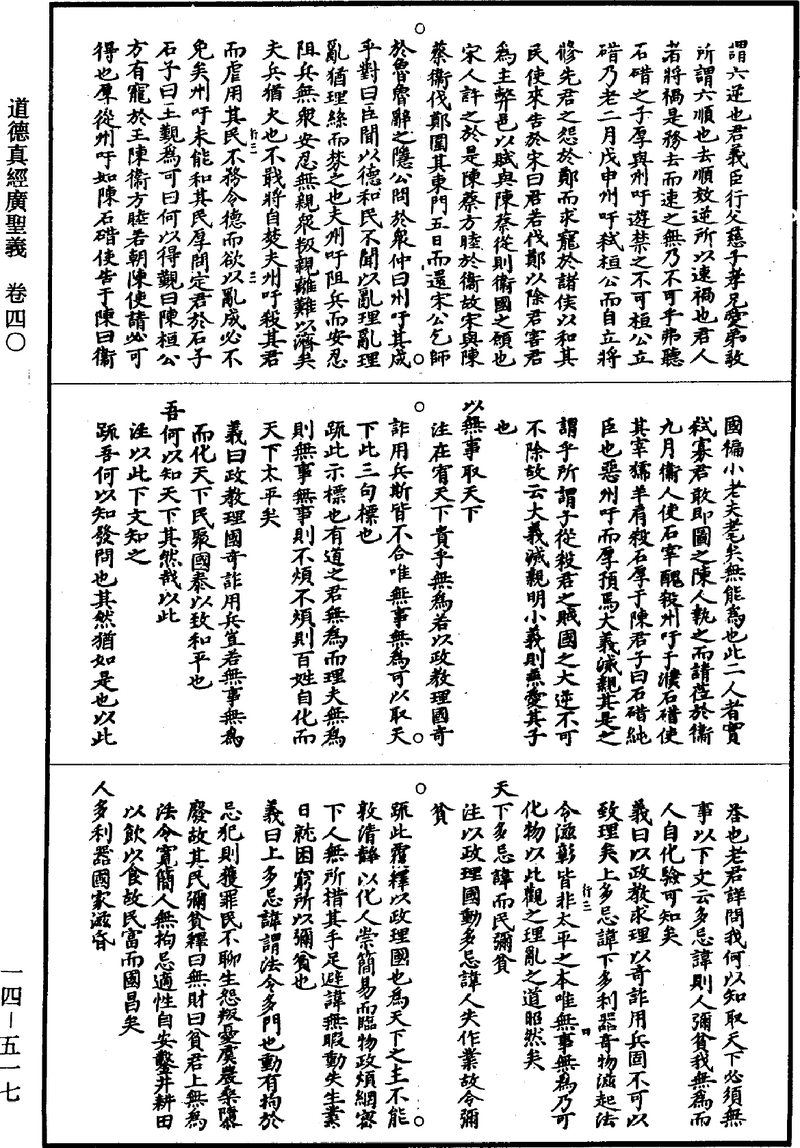 道德真經廣聖義　卷四〇
一四－五一七
謂六逆也君義臣行父慈子孝兄愛弟敬
所謂六順也去順效逆所以速禍也君人
者將禍是務去而速之無乃不可乎弗聽
石碏之子厚與州吁遊禁之不可桓公立
碏乃老二月戊申州吁弒桓公而自立將
修先君之怨於鄭而求寵於諸侯以和其
民使來告於宋曰君若伐鄭以除君害君
為主弊邑以賦與陳蔡從則衛國之願也
宋人許之於是陳蔡方睦於衛故宋與陳
蔡衛伐鄭圍其東門五日而還宋公乞師
於魯魯辭之隱公問於衆仲曰州吁其成
乎對曰臣聞以德和民不聞以亂理亂理
亂猶理絲而棼之也夫州吁阻兵而安忍
阻兵無衆安忍無親衆叛親離難以濟矣
夫兵猶火也不戢將自焚夫州吁殺其君
而虐用其民不務令德而欲以亂成必不
免矣州吁未能和其民厚問定君於石子
石子曰王覲為可曰何以得覲曰陳桓公
方有寵於王陳衛方睦若朝陳使請必可
得也厚從州吁如陳石碏使告于陳曰衛
國褊小老夫耄矣無能為也此二人者實
弒寡君敢即圖之陳人執之而請莅於衛
九月衛人使右宰醜殺州吁于濮石碏使
其宰獳羊肩殺石厚于陳君子曰石碏純
臣也惡州吁而厚預焉大義滅親其是之
謂乎所謂子從殺君之賊國之大逆不可
不除故云大義滅親明小義則無愛其子
也
以無事取天下
注在宥天下貴乎無為若以政教理國奇
詐用兵斯皆不合唯無事無為可以取天
下此三句標也
疏此示標也有道之君無為而理夫無為
則無事無事則不煩不煩則百姓自化而
天下太平矣
義曰政教理國奇詐用兵豈若無事無為
而化天下民聚國泰以致和平也
吾何以知天下其然哉以此
注以此下文知之
疏吾何以知發問也其然猶如是也以此
荅也老君詳問我何以知取天下必須無
事以下文云多忌諱則人彌貧我無為而
人自化驗可知矣
義曰以政教求理以奇詐用兵固不可以
致理矣上多忌諱下多利器奇物滋起法
令滋彰皆非太平之本唯無事無為乃可
化物以此觀之理亂之道昭然矣
天下多忌諱而民彌貧
注以政理國動多忌諱人失作業故令彌
貧
疏此覆釋以政理國也為天下之主不能
敦清靜以化人崇簡易而臨物政煩網密
下人無所措其手足避諱無暇動失生業
日就困窮所以彌貧也
義曰上多忌諱謂法令多門也動有拘於
忌犯則獲罪民不聊生怨叛憂虞農桑隳
廢故其民彌貧釋曰無財曰貧君上無為
法令寬簡人無拘忌適性自安鑿井耕田
以飲以食故民富而國昌矣
人多利器國家滋昏